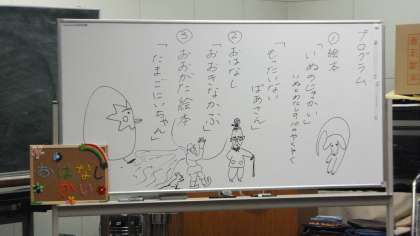 プログラム
①絵本
「いぬのじゅかい」
いぬとわたしの10のやくそく
「もったいない
ばあさん」
②おはなし
「おおきなかぶ」
③おおがた絵本
「たまごにいちゃん」
おはなし
かい